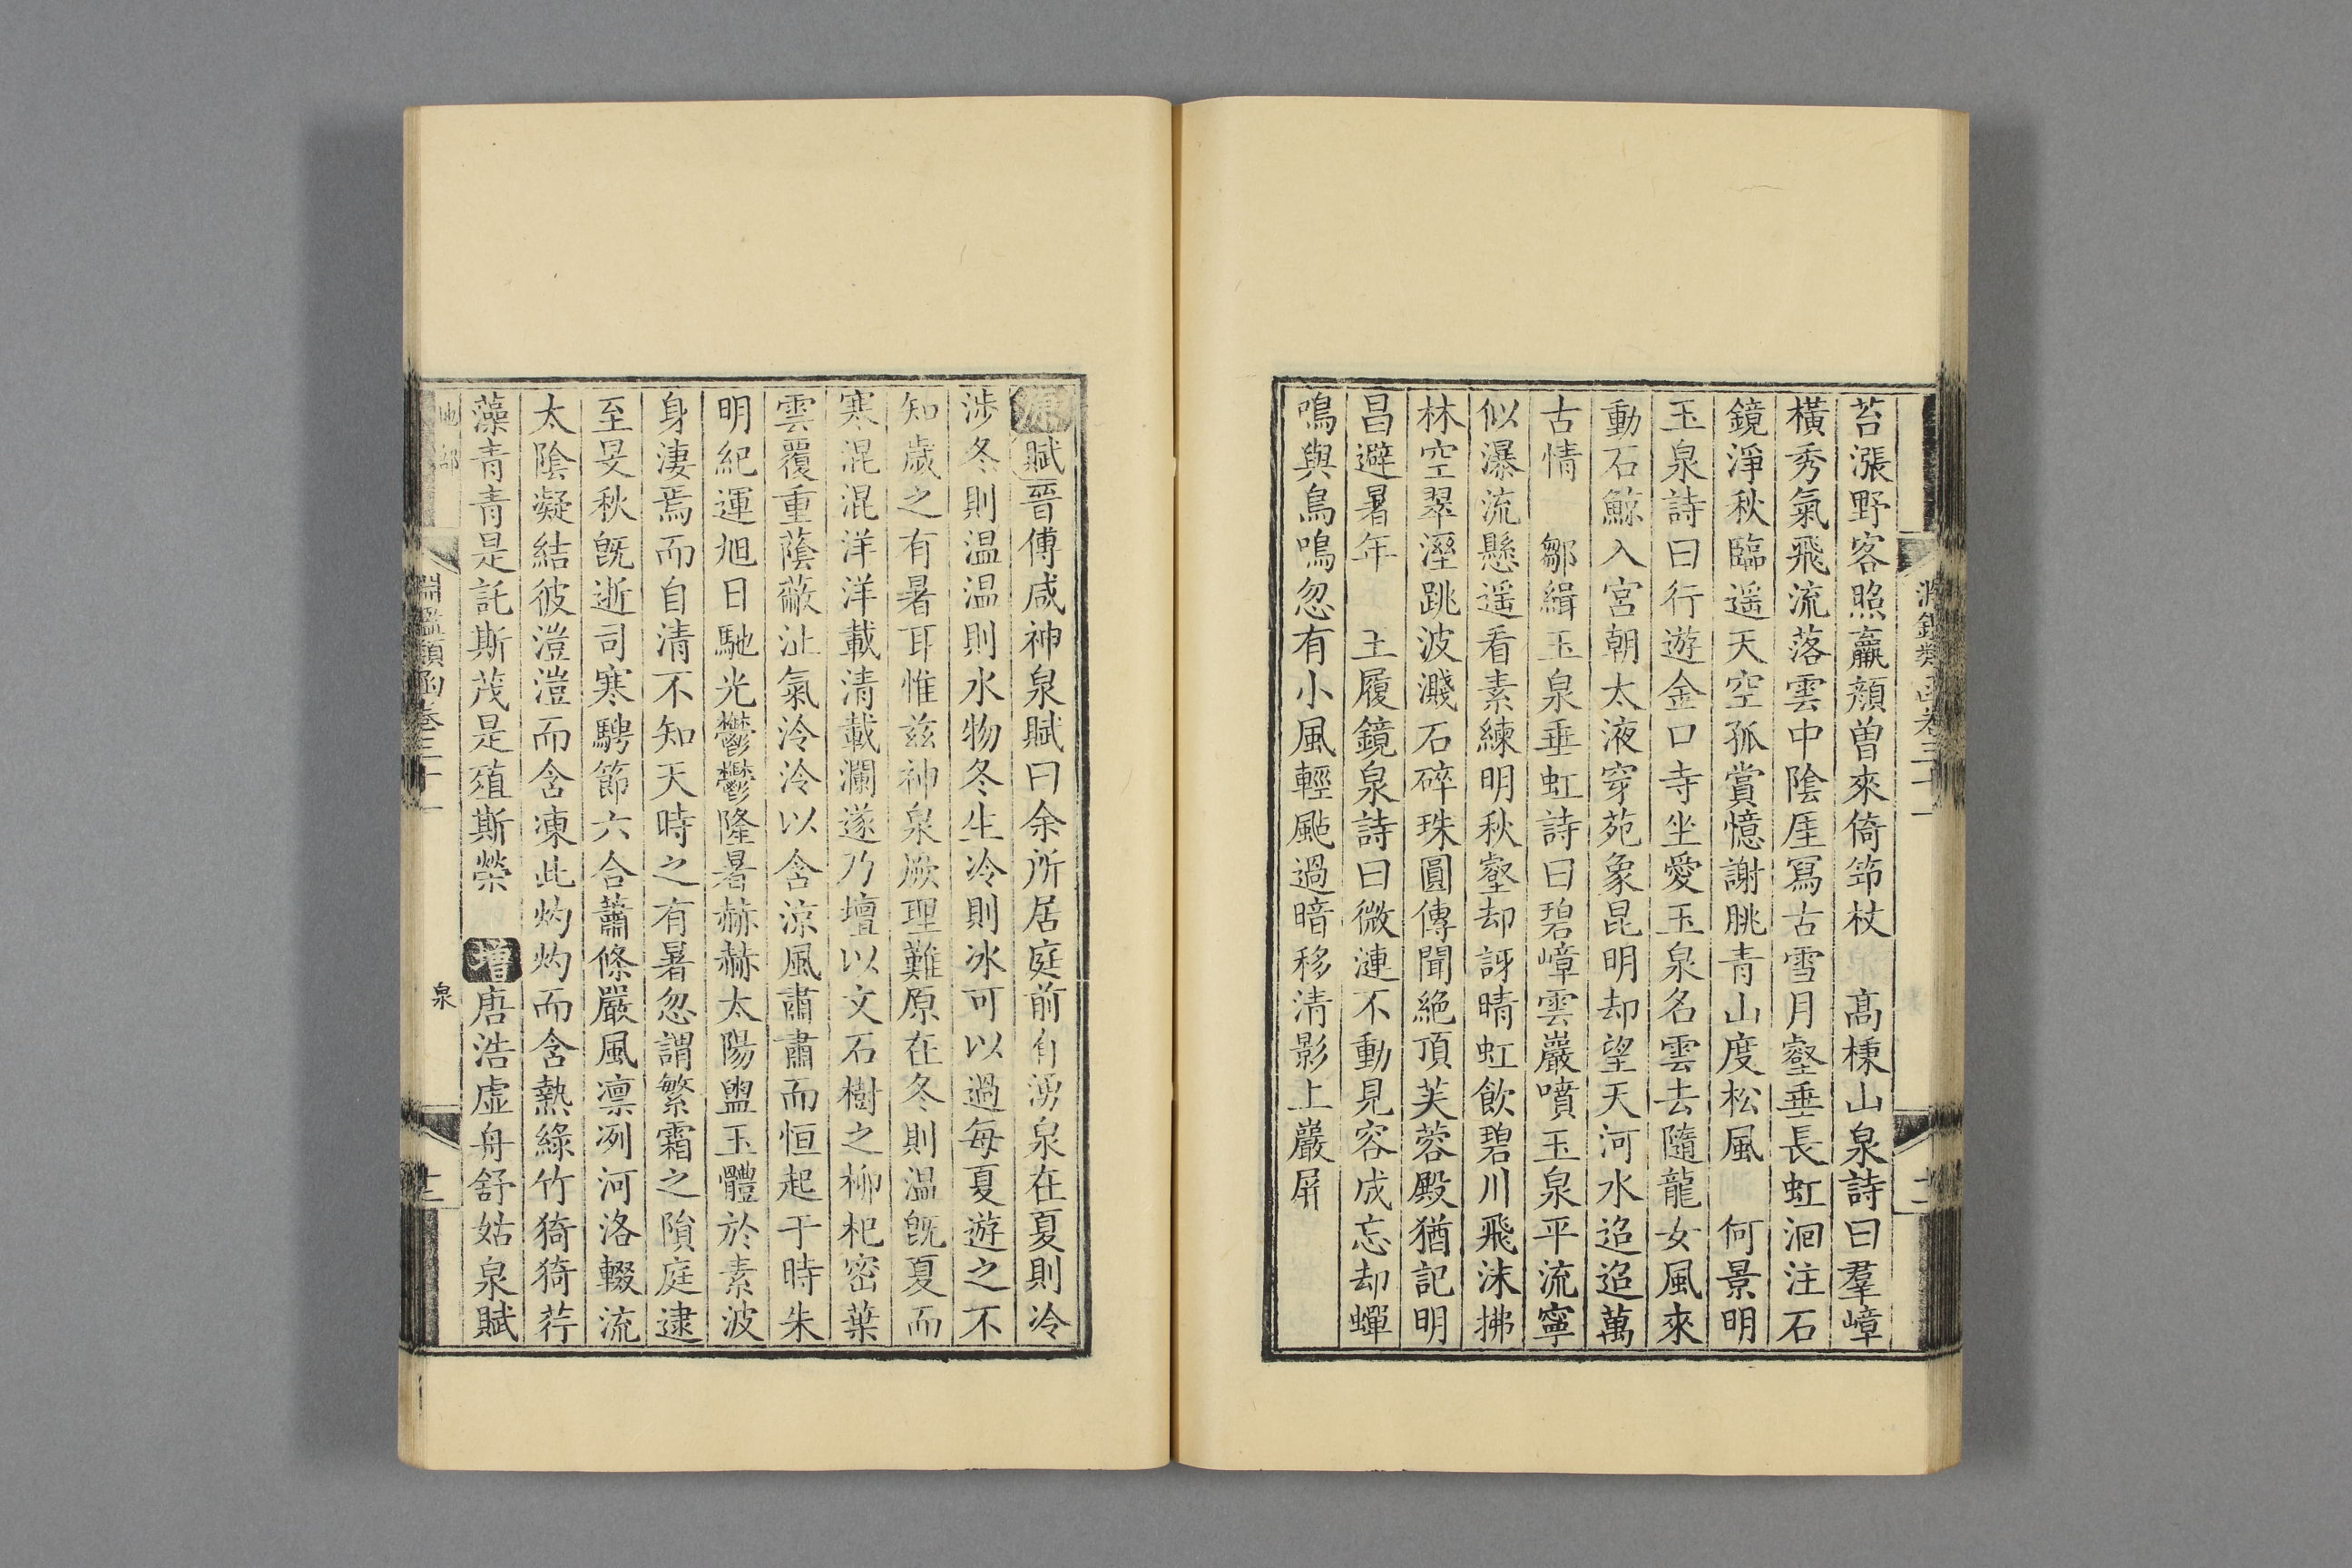 苔漲野客照羸顔曽來倚笻杖　髙棅山泉詩曰羣嶂
橫秀氣飛流落雲中陰厓冩古雪月壑垂長虹洄注石
鏡淨秋臨遥天空孤賞憶謝朓青山度松風　何景明
玉泉詩曰行遊金口寺坐愛玉泉名雲去隨龍女風來
動石鯨入宮朝太液穿苑象昆明却望天河水迢迢萬
古情　鄒緝玉泉垂虹詩曰碧嶂雲巖噴玉泉平流寧
似瀑流懸遥看素練明秋壑却訝晴虹飲碧川飛沫拂
林空翠溼跳波濺石碎珠圓傳聞絶頂芙蓉殿猶記明
昌避暑年　王履鏡泉詩曰微漣不動見容成忘却蟬
鳴與鳥鳴忽有小風輕颭過暗移清影上巖屏
淵鑑類函卷三十一
原賦晉傅咸神泉賦曰余所居庭前有湧泉在夏則冷
涉冬則温温則水物冬生冷則冰可以過每夏遊之不
知歲之有暑耳惟兹神泉厥理難原在冬則温旣夏而
寒混混洋洋載清載瀾遂乃壇以文石樹之柳杞密葉
雲覆重蔭蔽沚氣泠泠以含涼風肅肅而恒起于時朱
明紀運旭日馳光鬱鬱隆暑赫赫太陽盥玉體於素波
身淒焉而自清不知天時之有暑忽謂繁霜之隕庭逮
至旻秋旣逝司寒騁節六合蕭條嚴風凛冽河洛輟流
太陰凝結彼溰溰而含凍此灼灼而含熱綠竹猗猗荇
藻青青是託斯茂是殖斯榮　增唐浩虛舟舒姑泉賦
地部　淵鑑類函卷三十一　泉